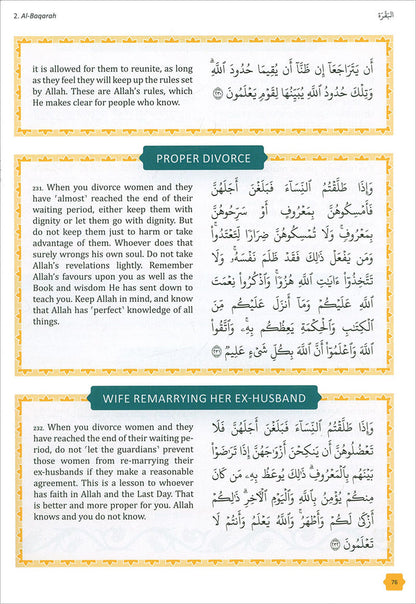 2. Al-Baqarah
البَقَرَة
it is allowed for them to reunite, as long
as they feel they will keep up the rules set
by Allah. These are Allah's rules, which
He makes clear for people who know.
أَن يَتَرَاجَعَا إِن ظَنَّا أَن يُقِيمَا حُدُودَ اللَّهِ ۗ
وَتِلْكَ حُدُودُ اللَّهِ يُبَيِّنُهَا لِقَوْمٍ يَعْلَمُونَ ٢٣٠
PROPER DIVORCE
231. When you divorce women and they
have ˹almost˺ reached the end of their
waiting period, either keep them with
dignity or let them go with dignity. But
do not keep them just to harm or take
advantage of them. Whoever does that
surely wrongs his own soul. Do not take
Allah's revelations lightly. Remember
Allah's favours upon you as well as the
Book and wisdom He has sent down to
teach you. Keep Allah in mind, and know
that Allah has ˹perfect˺ knowledge of all
things.
وَإِذَا طَلَّقْتُمُ النِّسَاءَ فَبَلَغْنَ أَجَلَهُنَّ
فَأَمْسِكُوهُنَّ بِمَعْرُوفٍ أَوْ سَرِّحُوهُنَّ
بِمَعْرُوفٍ ۚ وَلَا تُمْسِكُوهُنَّ ضِرَارًا لِّتَعْتَدُوا ۚ
وَمَن يَفْعَلْ ذَٰلِكَ فَقَدْ ظَلَمَ نَفْسَهُ ۚ وَلَا
تَتَّخِذُوا آيَاتِ اللَّهِ هُزُوًا ۚ وَاذْكُرُوا نِعْمَتَ
اللَّهِ عَلَيْكُمْ وَمَا أَنزَلَ عَلَيْكُم مِّنَ
الْكِتَابِ وَالْحِكْمَةِ يَعِظُكُم بِهِ ۚ وَاتَّقُوا
اللَّهَ وَاعْلَمُوا أَنَّ اللَّهَ بِكُلِّ شَيْءٍ عَلِيمٌ ٢٣١
WIFE REMARRYING HER EX-HUSBAND
232. When you divorce women and they
have reached the end of their waiting pe-
riod, do not ˹let the guardians˺ prevent
those women from re-marrying their
ex-husbands if they make a reasonable
agreement. This is a lesson to whoever
has faith in Allah and the Last Day. That
is better and more proper for you. Allah
knows and you do not know.
وَإِذَا طَلَّقْتُمُ النِّسَاءَ فَبَلَغْنَ أَجَلَهُنَّ فَلَا
تَعْضُلُوهُنَّ أَن يَنكِحْنَ أَزْوَاجَهُنَّ إِذَا تَرَاضَوْا
بَيْنَهُم بِالْمَعْرُوفِ ۗ ذَٰلِكَ يُوعَظُ بِهِ مَن كَانَ
مِنكُمْ يُؤْمِنُ بِاللَّهِ وَالْيَوْمِ الْآخِرِ ۗ ذَٰلِكُمْ
أَزْكَىٰ لَكُمْ وَأَطْهَرُ ۗ وَاللَّهُ يَعْلَمُ وَأَنتُمْ لَا
تَعْلَمُونَ ٢٣٢
76